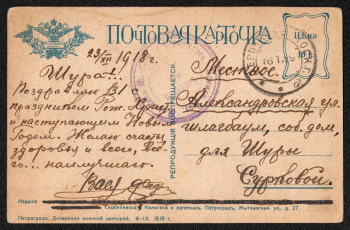 ПОЧТОВАЯ КАРТОЧКА
Цѣна
23/XII 1918 г.
Шура!
Поздравляю Вас
праздником Рож. Христ.
и наступающим Новым
Годом. Желаю счастья,
здоровья и всего, всего
наилучшаго.
Вася
РЕПРОДУКЦІЯ ВОСПРЕЩАЕТСЯ
Местное.
Александровская ул.
шлагбаум, сос. дом,
для Шуры
Сурковой.
Изданіе
Скобелевскаго Комитета о раненыхъ. Петроградъ, Мытнинская ул., д. 27.
Петроградъ. Дозволено военной цензурой. 9-IX. 1916 г.